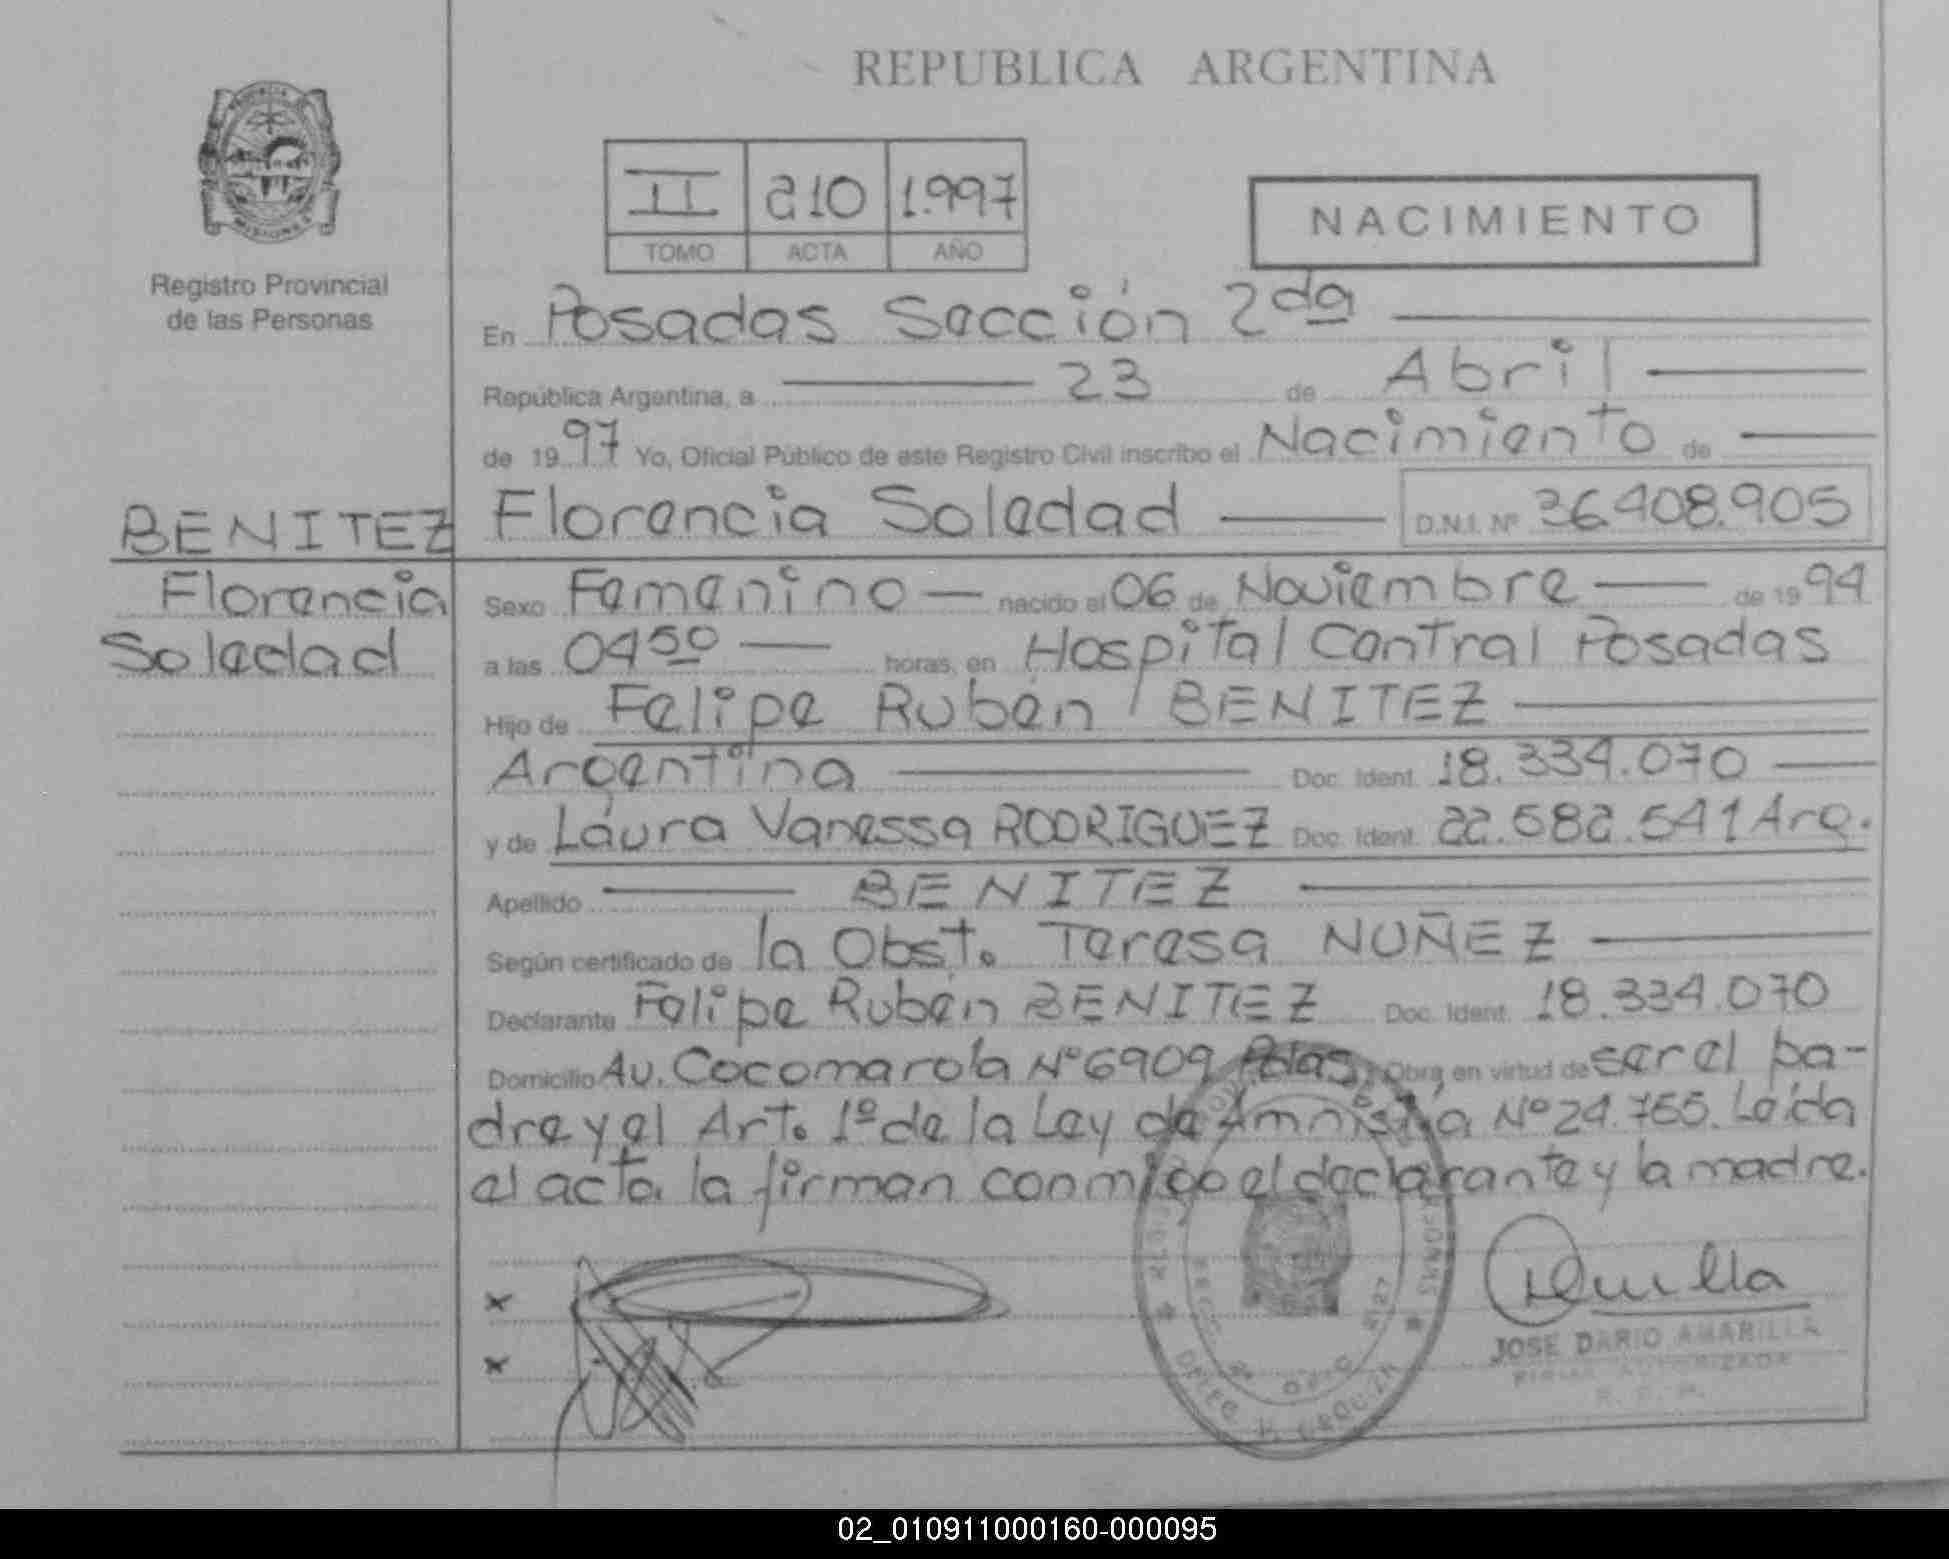 REPUBLICA ARGENTINA
II 210 1.997
TOMO ACTA AÑO
NACIMIENTO
Registro Provincial
de las Personas
En Posadas Sección 2da
República Argentina, a 23 de Abril
de 1997 Yo, Oficial Público de este Registro Civil inscribo el Nacimiento de
BENITEZ Florencia Soledad D.N.I. Nº 36.408.905
Florencia Sexo Femenino nacido el 06 de Noviembre de 1994
Soledad a las 04 50 horas, en Hospital Central Posadas
Hijo de Felipe Rubén BENITEZ
Argentina Doc. Ident. 18.334.070
y de Laura Vanessa RODRIGUEZ Doc. Ident. 22.682.541 Arg.
Apellido BENITEZ
Según certificado de la Obst. Teresa NUÑEZ
Declarante Felipe Rubén BENITEZ Doc. Ident. 18.334.070
Domicilio Av. Cocomarola Nº 6909 Pdas. Obra en virtud de ser el pa-
dre y el Art. 1º de la Ley de Amnistía Nº 24.755. Leída
el acta la firman conmigo el declarante y la madre.
JOSE DARIO AMARILLA
FIRMA AUTORIZADA
R. P. P.
02_010911000160-000095